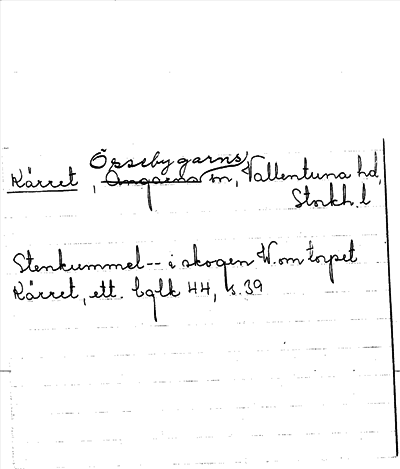 Össeby garns
Kärret, Angarns sn, Vallentuna hd,
Stockh. l
Stenkummel-- i skogen W. om torpet
Kärret, ett. bglk 44, s. 39